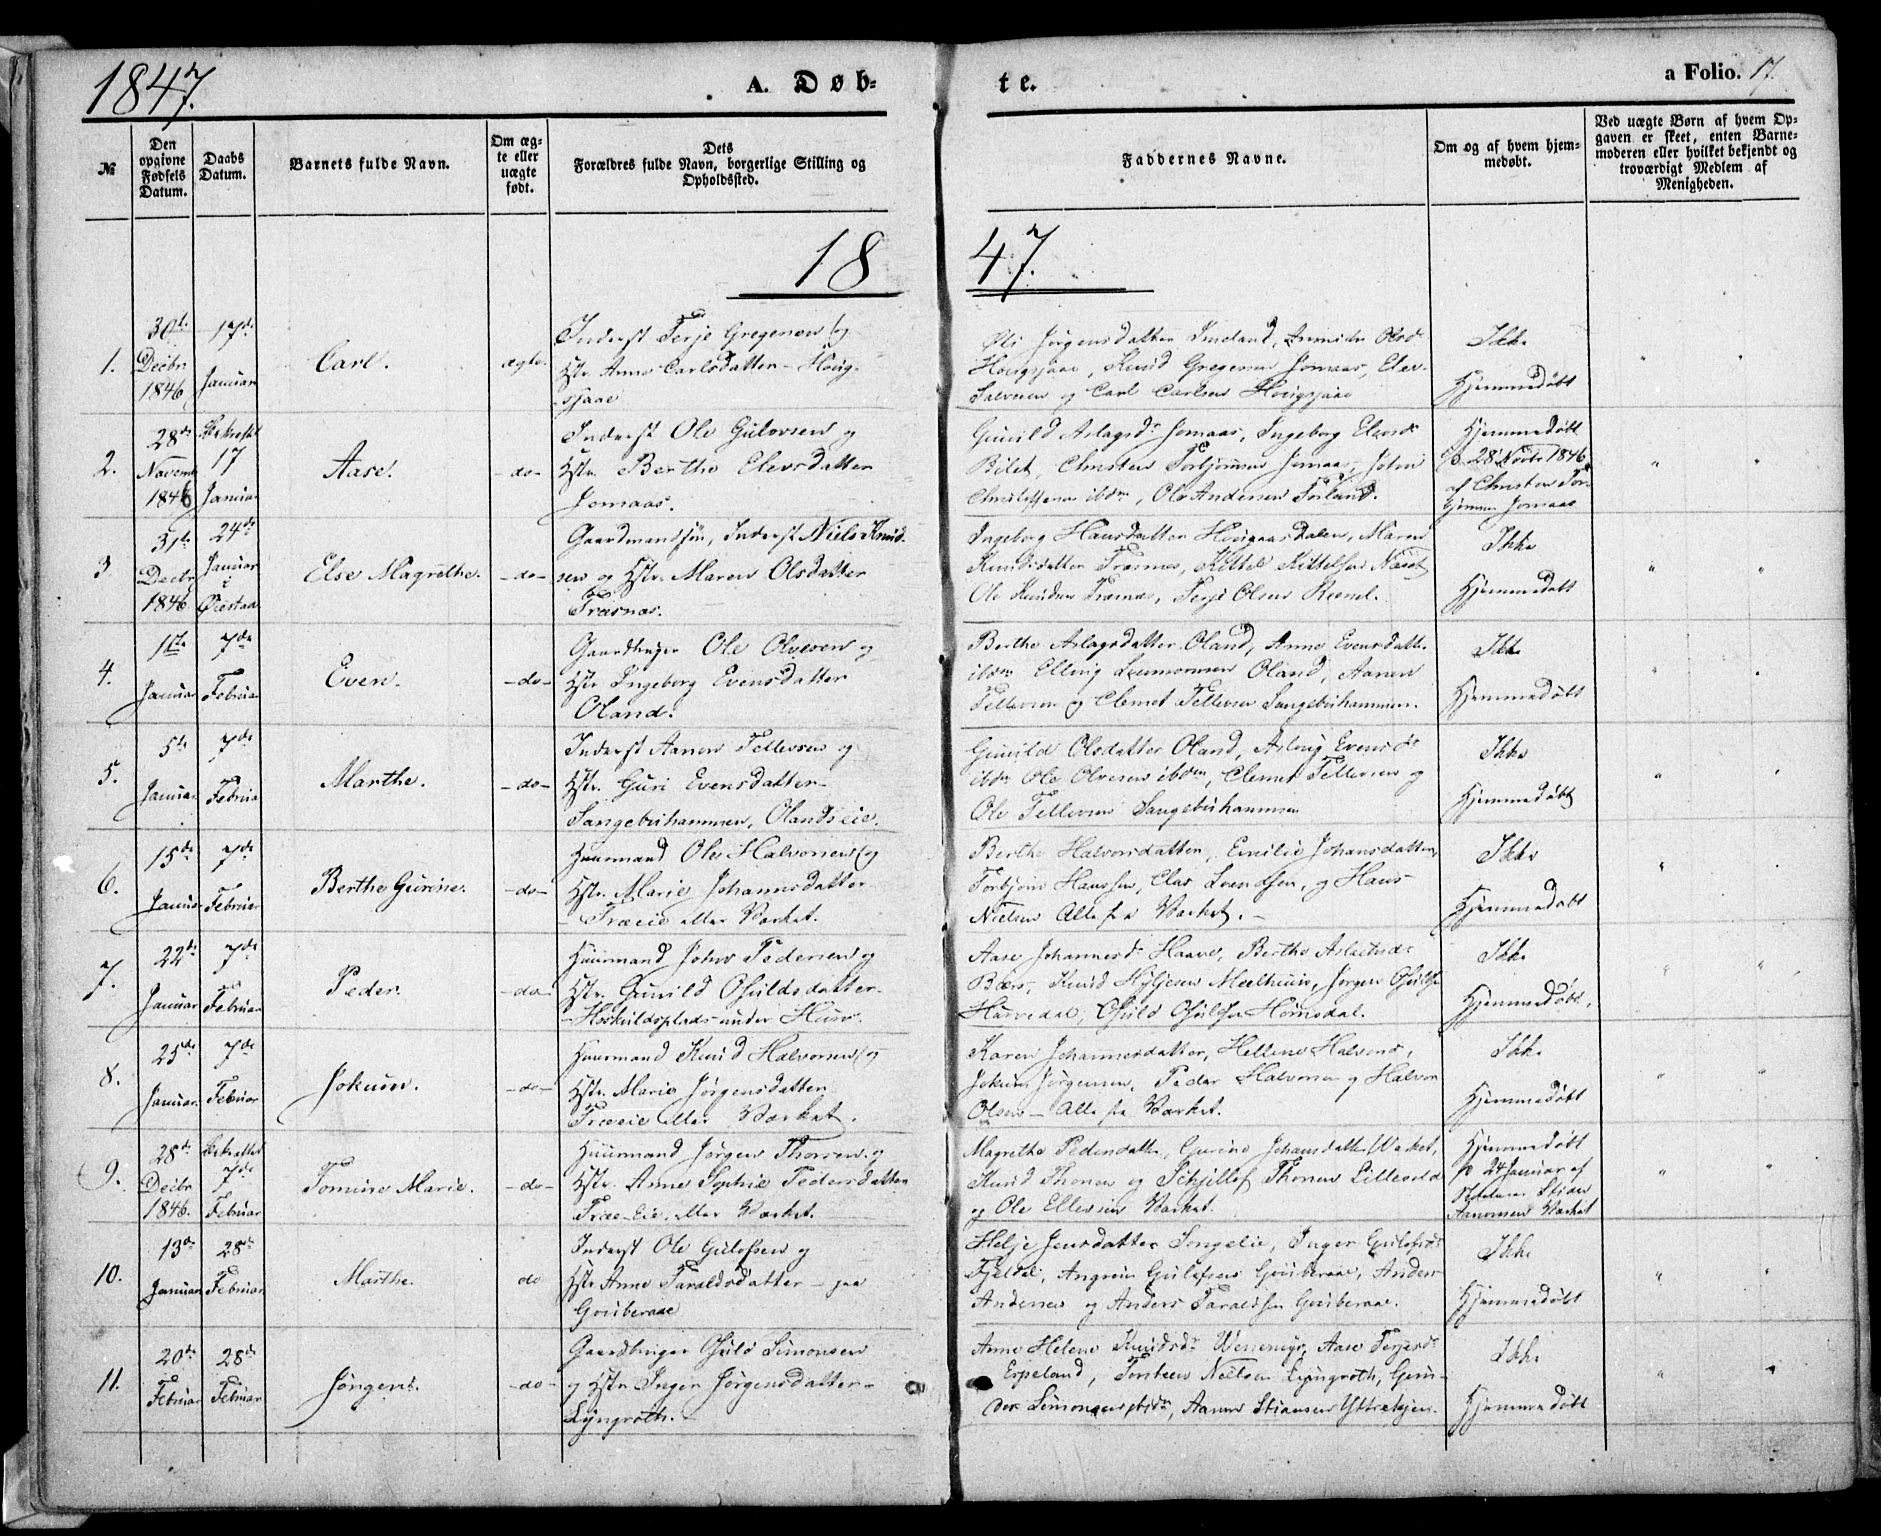 1847.
A. Døb-
te.
a Folio. 17.
№
Den opgivne Fødsels Datum.
Daabs Datum.
Barnets fulde Navn.
Om ægte eller uægte født.
Dets
Forældres fulde Navn, borgerlige Stilling og
Opholdssted.
Faddernes Navne.
Om og af hvem hjem-
medøbt.
Ved uægte Børn af hvem Op-
gaven er skeet, enten Barne-
moderen eller hvilket bekjendt og
troværdigt Medlem af
Menigheden.
18
47.
1.
30te
Decbr
1846
17de
Januar
Carl.
ægte
Inderst Terje Gregersen og
Hstr. Anne Carlsdatter - Houg-
sjaae
Jørgensdatter Imeland, Olsd
Hougsjaae, Knud Gregersen Jomaas, Elev
Salvesen og Carl Carlsen Hougsjaae
Ikke
Hjemmedøbt
2.
28de
Novemb
1846
17
Januar
Aase.
-do-
Inderst Ole Gulovsen og
Hstr. Berthe Elevsdatter
Jomaas.
Gunild Aslagsdr Jomaas, Ingeborg Elevsdr
Christen Torbjørnsen Jomaas, John
Christensen ibdm, Ole Andersen Torland.
Hjemmedøbt
28 Novbr 1846
af Christen Tor-
Jomaas
3
31te
Decbr
1846
24de
Januar
i
Øiestad
Else Magrethe.
-do-
Gaardmandssøn, Inderst Niels Knud-
sen og Hstr. Maren Olsdatter
Træsnæs.
Ingeborg Hansdatter Maren
Knudsdatter Træsnæs, Kittel Kittelsen
Ole Knudsen Træsnæs, Terje Olsen
Ikke
Hjemmedøbt
4.
1te
Januar
7de
Februar
Even.
-do-
Gaardbruger Ole Olvesen og
Hstr Ingeborg Evensdatter
Oland.
Berthe Aslagsdatter Oland, Anne Evensdatter
ibdm Elling Oland, Aanen
Tellevsen og Clemet Tellevsen Sangebuhammen.
Ikke
Hjemmedøbt
5.
5te
Januar
7de
Februar
Marthe.
-do-
Inderst Aanen Tellevsen og
Hstr. Guri Evensdatter
Sangebuhammen, Olandseie.
Gunild Olsdatter Oland, Aslaug Evensdr
ibdm Ole Olvesen ibdem, Clemet Tellevsen og
Ole Tellevsen Sangebuhammen
Ikke
Hjemmedøbt
6.
15de
Januar
7de
Februar
Berthe Gurine.
-do-
Huusmand Ole Halvorsen og
Hstr. Marie Johannsdatter
Træeie eller Værket.
Berthe Halvorsdatter, Emilie Johansdatter,
Torbjørn Hanssen, Elias Svendsen, og Hans
Nielsen Alle fra Værket.
Ikke
Hjemmedøbt
7.
22de
Januar
7de
Februar
Peder.
-do-
Huusmand John Pedersen og
Hstr. Gunild Osuldsdatter
Hoskuldsplads under Huse.
Aase Johannesdr Haave, Berthe Aslaksdr
Knud Jørgen Osulds
Osuld Osulsen Hornsdal.
Ikke
Hjemmedøbt.
8.
25de
Januar
7de
Februar
Jokum.
-do-
Huusmand Knud Halvorsen og
Hstr. Marie Jørgensdatter
Træeie eller Værket.
Karen Johannesdatter, Hellene Halvorsd,
Jokum Jørgensen, Peder Halvorsen og Halvor
Olsen - Alle fra Værket.
Ikke
Hjemmedøbt
9.
28de
Decbr
1846.
7de
Februar
Tomine Marie.
-do-
Huusmand Jørgen Thorsen og
Hstr. Anne Sophie Pedersdatter
Træ-Eie eller Værket.
Magrethe Pedersdatter, Gurine Johansdatter Værket,
Knud Thorsen og Thorsen Lillevold
og Ole Ellevsen Værket.
Hjemmedøbt
24 Januar af
Stiar
Aanonsen Værket
10.
13de
Januar
28de
Februar
Marthe.
do
Inderst Ole Gulofsen og
Hstr Anne Taraldsdatter - paa
Gouberaae
Helje Jensdatter Songelie, Inger Gulofsdr
Fjeldal, Angrim Gulofsen Gouberaae, Anders
Andersen og Anders Taraldsen Gouberaae.
Ikke
Hjemmedøbt
11.
20de
Februar
28de
Februar
Jørgen.
-do-
Gaardbruger Osuld Simonsen
og Hstr Inger Jørgensdatter
Lyngroth.
Anne Helene Knudsdr Wenemyr, Aase Terjesdr
Espeland, Torsten Nielsen Lyngroth, Gun-
der Simonsen ibdm, Aanen Stiansen
Ikke
Hjemmedøbt